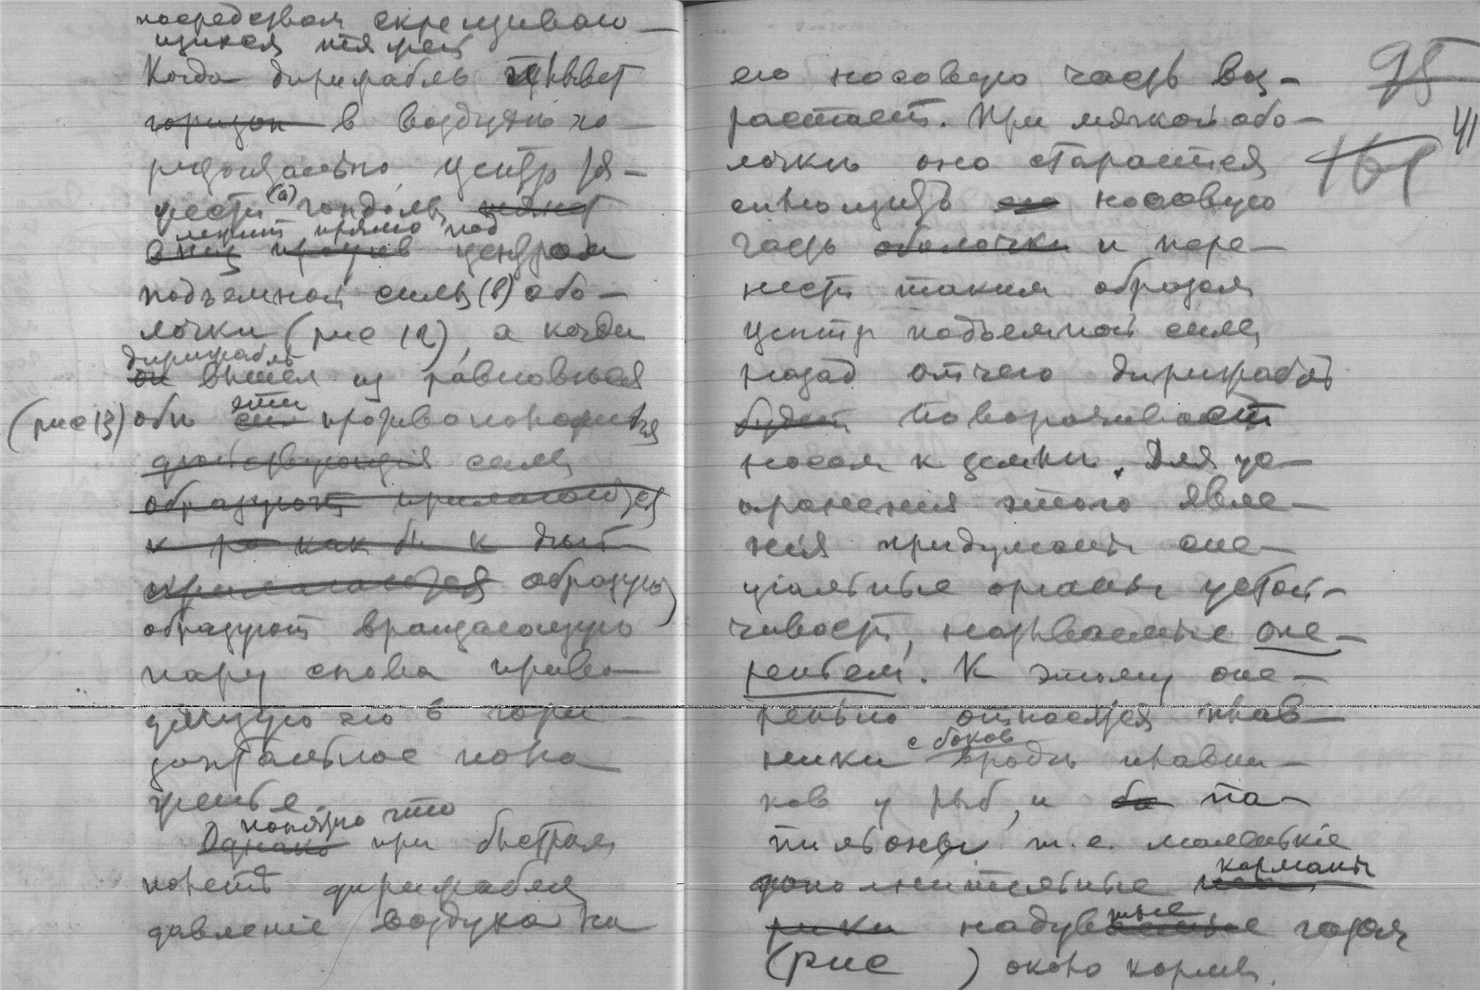 посредством скрещиваю-
щихся тяжей
Когда дирижабль плывет
горизон в воздухе го-
ризонтально центр тя-
жести (а) гондолы тянет
лежит прямо под
вниз против центром
подъемной силы (в) обо-
лочки (рис 12), а когда
дирижабль
он вышел из равновесия
(рис 13) обе эти противоположныя
действующия силы
образуют прилагаются
как бы к
прилагаются образую
образуют вращающую
пару снова приво-
дящую его в гори-
зонтальное поло
женье.
понятно что
Однако при быстром
полете дирижабля
давление воздуха на
его носовую часть воз-
растает. При мягкой обо-
лочке оно старается
сплющить ее носовую
часть оболочки и пере-
нести таким образом
центр подъемной силы
назад отчего дирижабль
будет поворачивает
носом к земле. Для ус-
транения этого явле-
ния придуманы спе-
циальные органы устой-
чивости, называемые опе-
реньем. К этому опе-
ренью относятся плав-
с боков
ники вроде плавни-
ков у рыб, и ба па-
пильоны т.е. маленькие
карманы
дополнительные
рики надуваемые газом
ные
(рис ) около кормы.
95
161
41